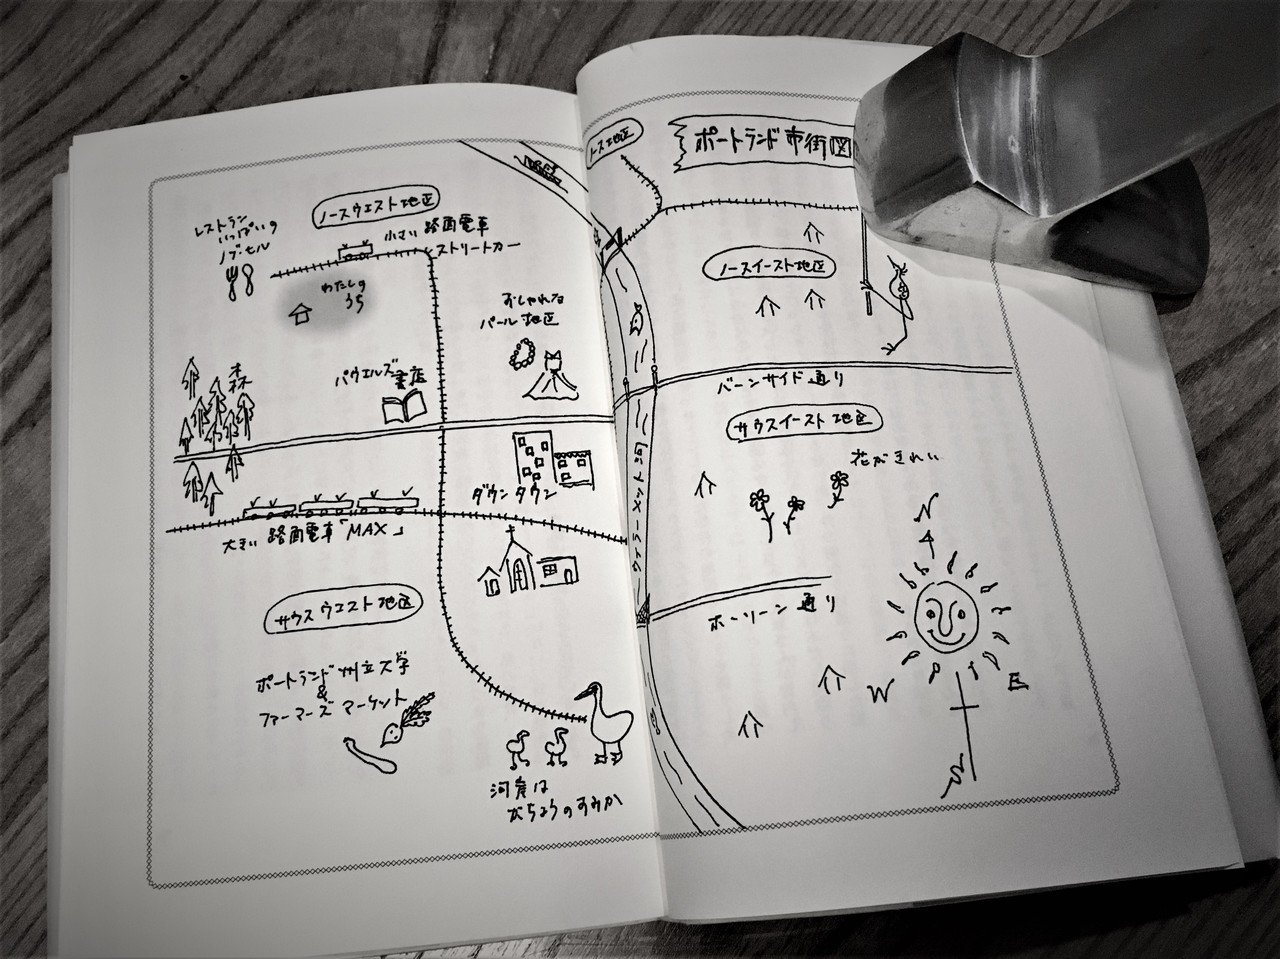 ノースウエスト地区
レストラン
いっぱいの
ノブ・ヒル
小さい路面電車
ストリートカー
わたしの
うち
おしゃれな
パール地区
森
パウエルズ書店
ダウンタウン
大きい路面電車「MAX」
サウスウエスト地区
ポートランド州立大学
&
ファーマーズマーケット
河岸は
がちょうのすみか
ース地区
ポートランド市街図
ノースイースト地区
バーンサイド通り
サウスイースト地区
花がきれい
ウィラーメット川
ホーソーン通り
N
W
E
S